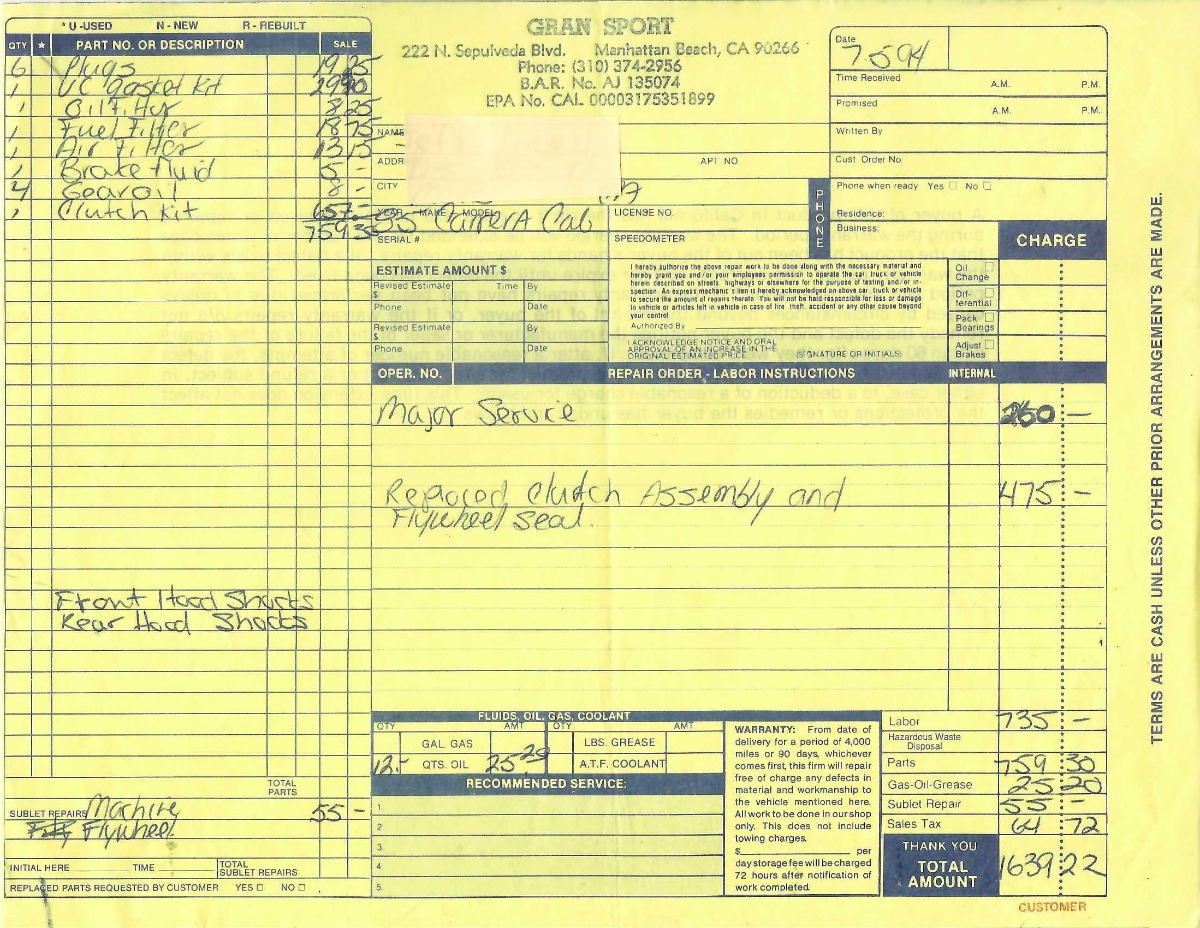 * U-USED N - NEW R - REBUILT
QTY * PART NO. OR DESCRIPTION SALE
6 Plugs 19 25
1 VC gasket Kit 29 90
1 Oil Filter 8 25
1 Fuel Filter 18 75
1 Air Filter 13 15
1 Brake fluid 5 -
4 Gear oil 8 -
1 Clutch Kit 657 -
759 30
Front Hood Shocks
Rear Hood Shocks
TOTAL PARTS
SUBLET REPAIRS Machine 55 -
Flywheel
INITIAL HERE TIME TOTAL SUBLET REPAIRS
REPLACED PARTS REQUESTED BY CUSTOMER YES NO
GRAN SPORT
222 N. Sepulveda Blvd. Manhattan Beach, CA 90266
Phone: (310) 374-2956
B.A.R. No. AJ 135074
EPA No. CAL 00003175351899
NAME
ADDR
APT NO
CITY
YEAR - MAKE - MODEL Carrera Cab
LICENSE NO.
SERIAL #
SPEEDOMETER
Date 7-5-94
Time Received A.M. P.M.
Promised A.M. P.M.
Written By
Cust. Order No.
PHONE
Phone when ready Yes No
Residence:
Business:
CHARGE
ESTIMATE AMOUNT $
Revised Estimate Time By
$
Phone Date
Revised Estimate By
$
Phone Date
I hereby authorize the above repair work to be done along with the necessary material and
hereby grant you and/or your employees permission to operate the car, truck or vehicle
herein described on streets, highways or elsewhere for the purpose of testing and/or in-
spection. An express mechanic's lien is hereby acknowledged on above car, truck or vehicle
to secure the amount of repairs thereto. You will not be held responsible for loss or damage
to vehicle or articles left in vehicle in case of fire, theft, accident or any other cause beyond
your control.
Authorized By
I ACKNOWLEDGE NOTICE AND ORAL
APPROVAL OF AN INCREASE IN THE
ORIGINAL ESTIMATED PRICE (SIGNATURE OR INITIALS)
Oil Change
Dif-ferential
Pack Bearings
Adjust Brakes
OPER. NO. REPAIR ORDER - LABOR INSTRUCTIONS INTERNAL
Major Service 260 -
Replaced Clutch Assembly and 475 -
Flywheel seal.
FLUIDS, OIL, GAS, COOLANT
QTY AMT QTY AMT
GAL. GAS LBS. GREASE
12.- QTS. OIL 25.20 A.T.F. COOLANT
RECOMMENDED SERVICE:
1.
2
3.
4
5.
WARRANTY: From date of
delivery for a period of 4,000
miles or 90 days, whichever
comes first, this firm will repair
free of charge any defects in
material and workmanship to
the vehicle mentioned here.
All work to be done in our shop
only. This does not include
towing charges.
$ per
day storage fee will be charged
72 hours after notification of
work completed.
Labor 735 -
Hazardous Waste Disposal
Parts 759 30
Gas-Oil-Grease 25 20
Sublet Repair 55 -
Sales Tax 64 72
THANK YOU
TOTAL AMOUNT 1639 22
CUSTOMER
TERMS ARE CASH UNLESS OTHER PRIOR ARRANGEMENTS ARE MADE.